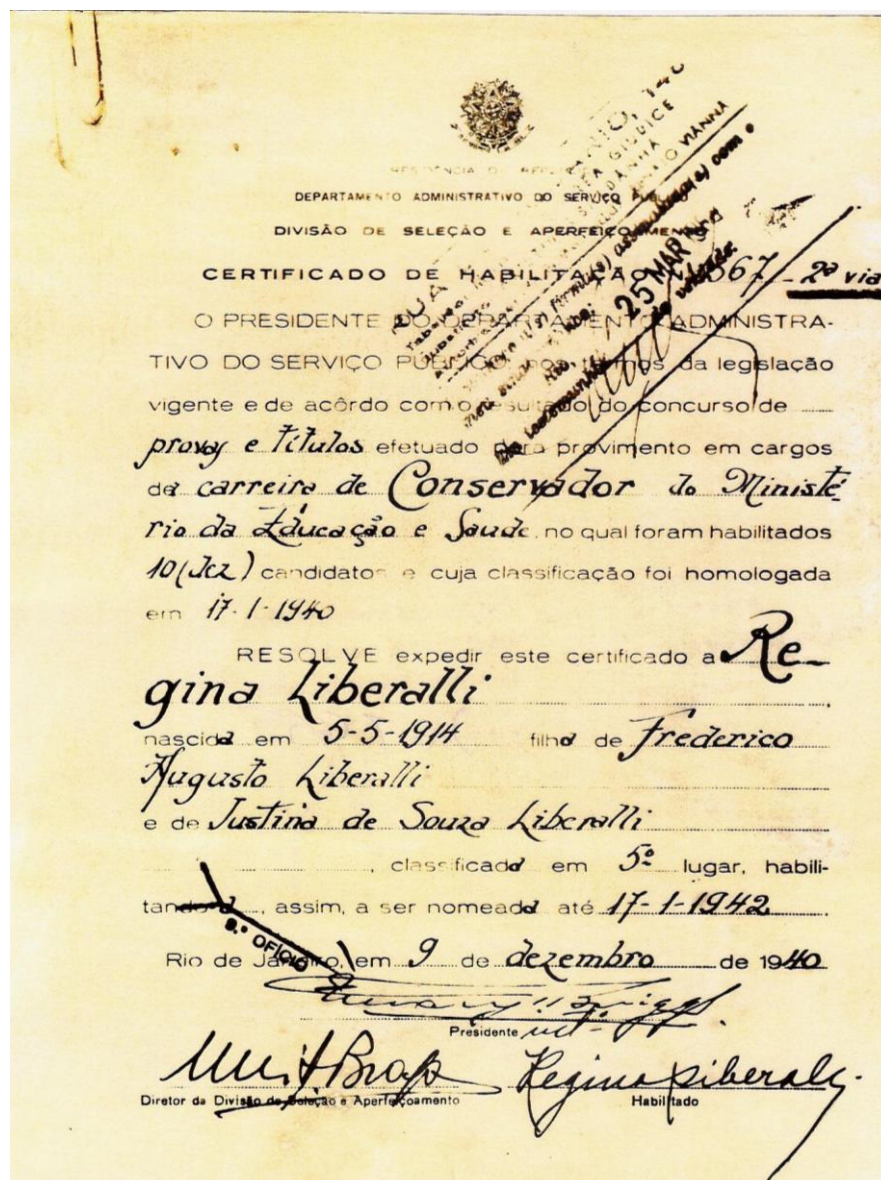 DEPARTAMENTO ADMINISTRATIVO DO SERVIÇO PÚBLICO
DIVISÃO DE SELEÇÃO E APERFEIÇOAMENTO
CERTIFICADO DE HABILITAÇÃO 567 2ª via
O PRESIDENTE DO DEPARTAMENTO ADMINISTRA-
TIVO DO SERVIÇO PÚBLICO, nos têrmos da legislação
vigente e de acôrdo com o resultado do concurso de
provas e títulos efetuado para provimento em cargos
da carreira de Conservador do Ministé-
rio da Educação e Saude, no qual foram habilitados
10 (dez) candidatos e cuja classificação foi homologada
em 17-1-1940
RESOLVE expedir este certificado a Re-
gina Liberalli
nascida em 5-5-1914 filha de Frederico
Augusto Liberalli
e de Justina de Souza Liberalli
, classificada em 5º lugar, habili-
tando-a, assim, a ser nomeada até 17-1-1942.
9.º OFÍCIO
Rio de Janeiro, em 9 de dezembro de 1940
Presidente
Regina Liberalli
Diretor da Divisão de Seleção e Aperfeiçoamento
Habilitado
25 MAR